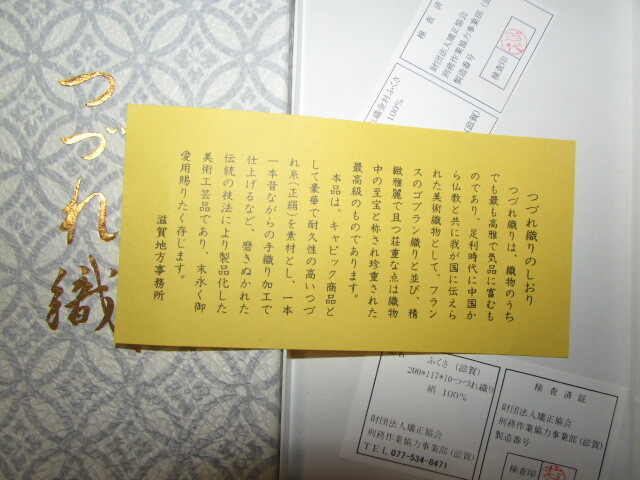 つづれ織
つづれ織りのしおり
つづれ織りは、織物のうち
でも最も高雅で気品に富むも
のであり、足利時代に中国か
ら仏教と共に我が国に伝えら
れた美術織物として、フラン
スのゴブラン織りと並び、精
緻雅麗で且つ荘重な点は織物
中の至宝と称され珍重された
最高級のものであります。
本品は、キャピック商品と
して豪華で耐久性の高いつづ
れ糸(正絹)を素材とし、一本
一本昔ながらの手織り加工で
仕上げるなど、磨きぬかれた
伝統の技法により製品化した
美術工芸品であり、末永く御
愛用賜りたく存じます。
滋賀地方事務所
検査済
財団法人矯正協会
刑務作業協力事業部(滋
製造番号
検査印
れ織金封ふくさ
100%
(滋賀)
ふくさ(滋賀)
200*117*10つづれ織り
絹 100%
財団法人矯正協会
刑務作業協力事業部(滋賀)
TEL 077-534-8471
検査済証
財団法人矯正協会
刑務作業協力事業部(滋賀)
製造番号
検査印